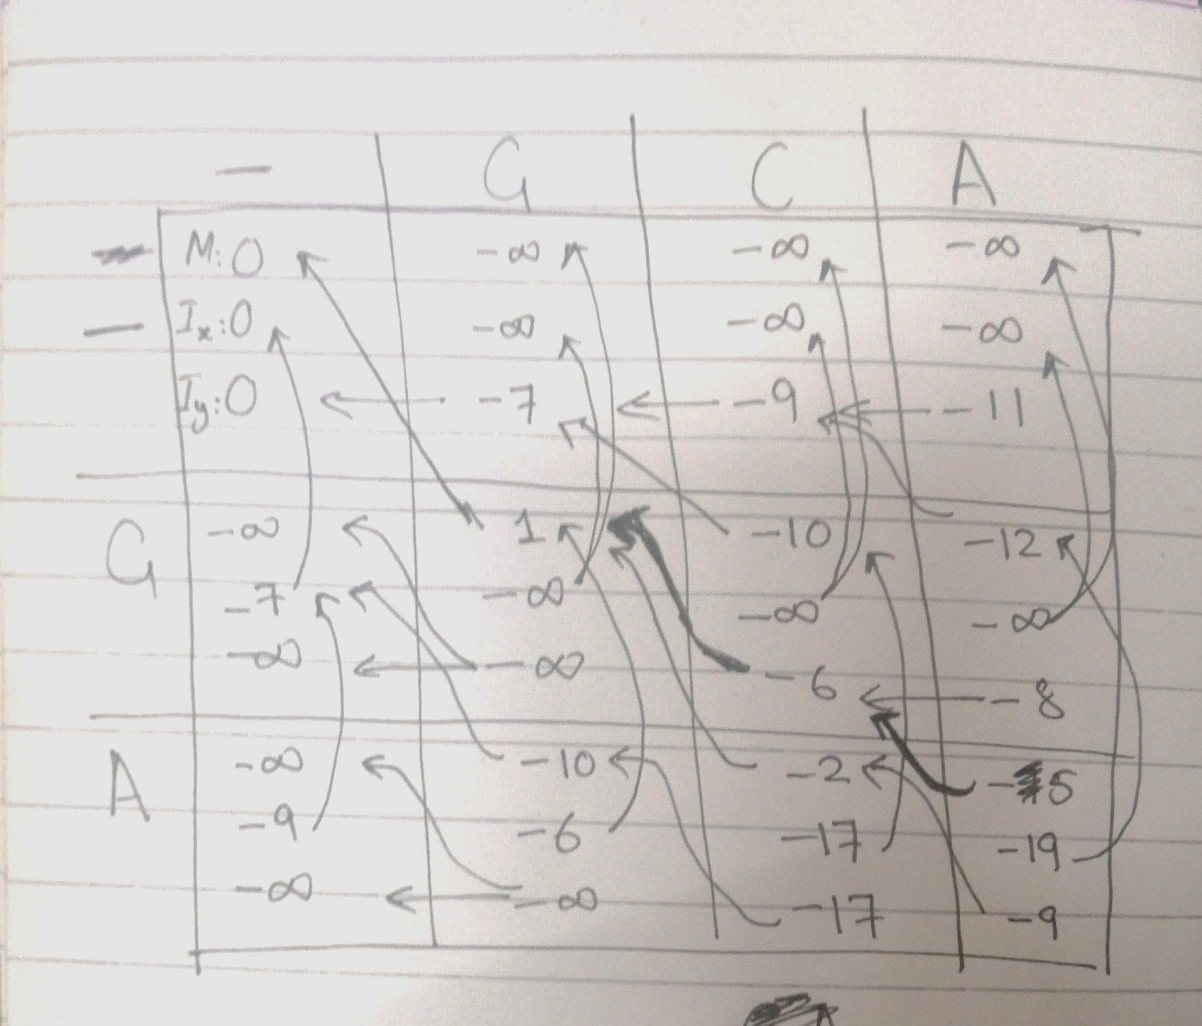 — G C A
M:0 -∞ -∞ -∞
— Ix:0 -∞ -∞ -∞
Iy:0 -7 -9 -11
G -∞ 1 -10 -12
-7 -∞ -∞ -∞
-∞ -∞ -6 -8
A -∞ -10 -2 -5
-9 -6 -17 -19
-∞ -∞ -17 -9